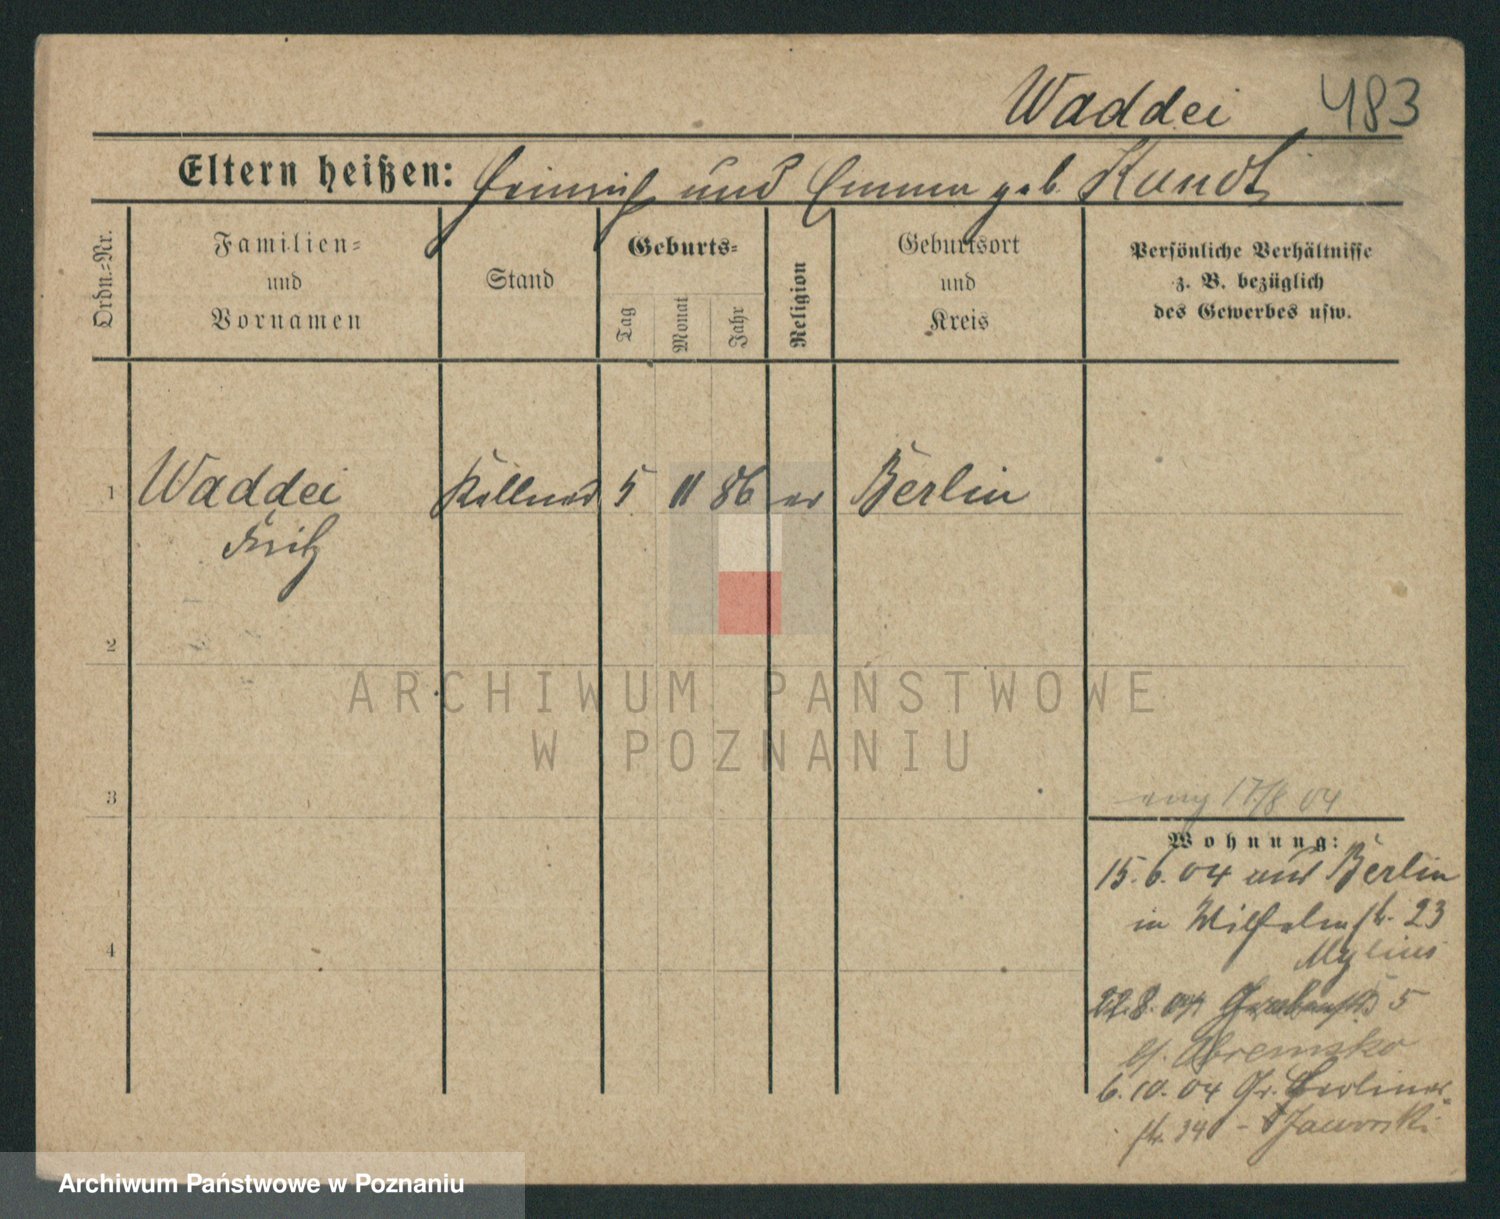 Waddei 483
Eltern heißen: Heinrich und Emma geb. Kundt
Ordn.=Nr.
Familien=
und
Vornamen
Stand
Geburts=
Tag
Monat
Jahr
Religion
Geburtsort
und
Kreis
Persönliche Verhältnisse
z. B. bezüglich
des Gewerbes usw.
1 Waddei Kellner 5 11 86 ev Berlin
Fritz
2
ARCHIWUM PAŃSTWOWE
W POZNANIU
3
17/8 04
Wohnung:
15.6.04 aus Berlin
in Wilhelmstr. 23
Mylius
22.8.04 5
b/
6.10.04 Gr. Berliner-
str. 34 - Jaworski
4
Archiwum Państwowe w Poznaniu